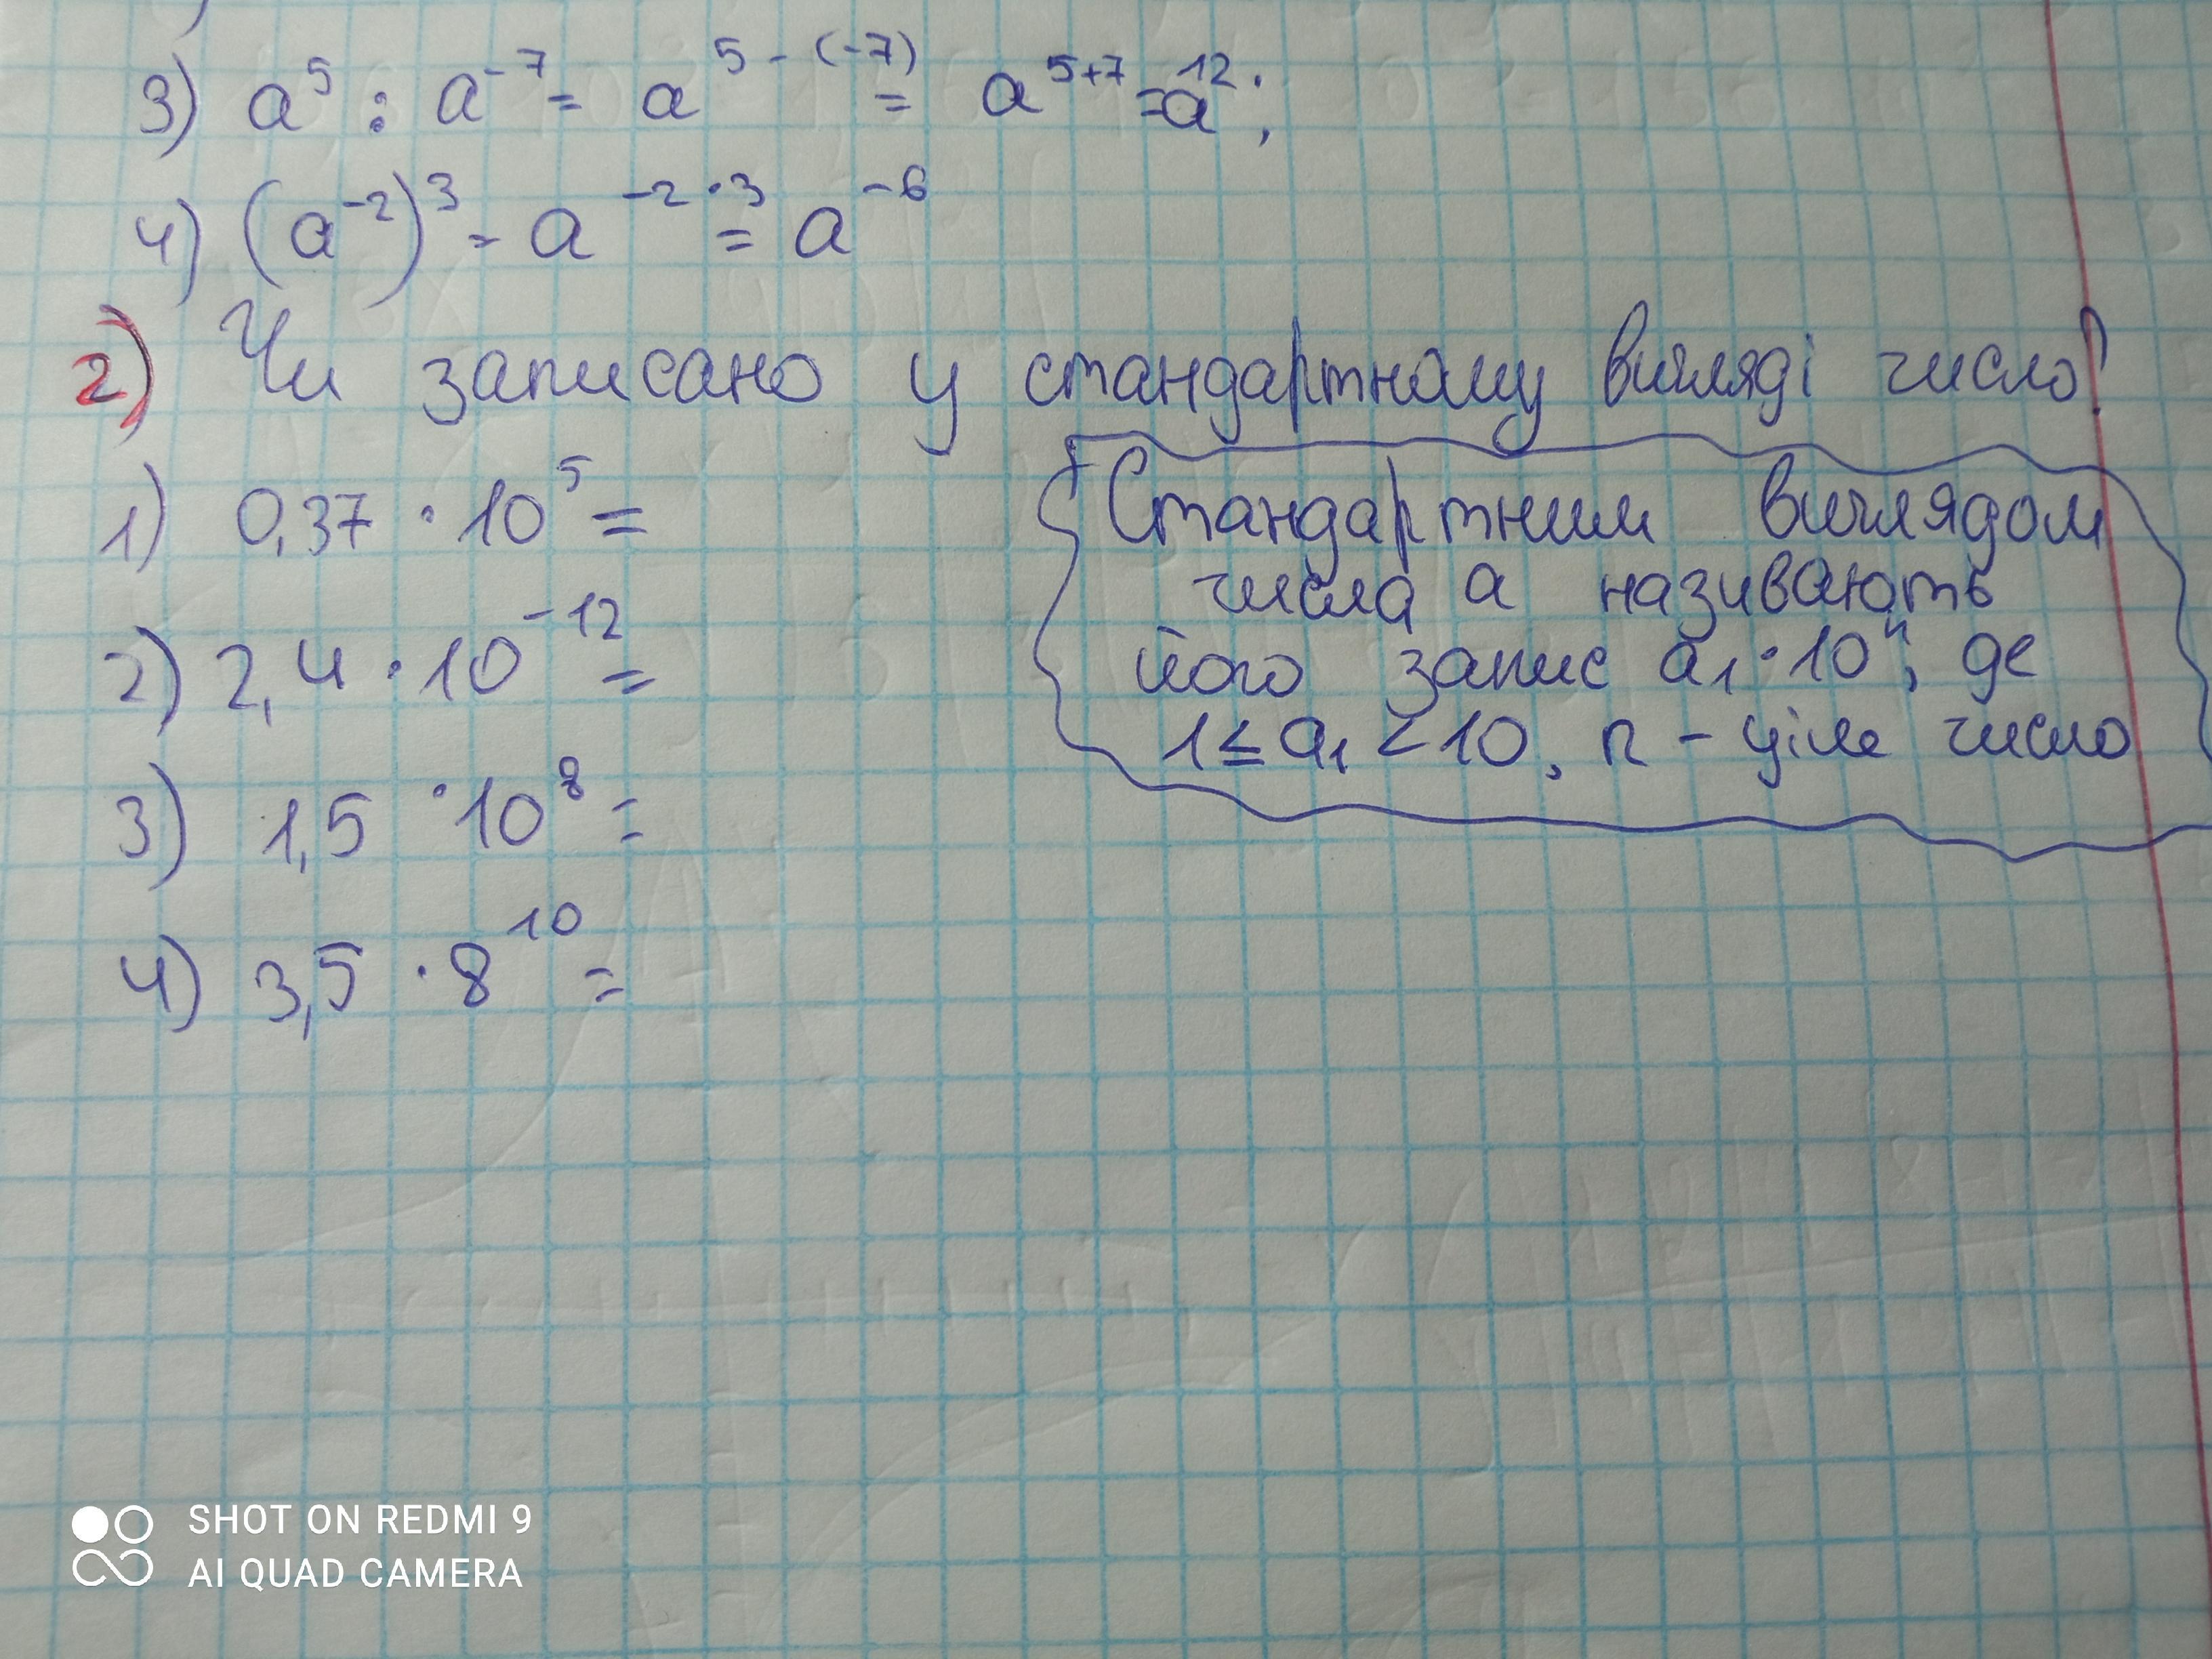 3) a⁵ : a⁻⁷ = a⁵⁻⁽⁻⁷⁾ = a⁵⁺⁷ = a¹²;
4) (a⁻²)³ = a⁻²·³ = a⁻⁶
2) Чи записано у стандартному вигляді число?
1) 0,37 · 10⁵ =
2) 2,4 · 10⁻¹² =
3) 1,5 · 10⁸ =
4) 3,5 · 8¹⁰ =
Стандартним виглядом
числа a називають
його запис a₁ · 10ⁿ, де
1 ≤ a₁ < 10, n – ціле число
SHOT ON REDMI 9
AI QUAD CAMERA